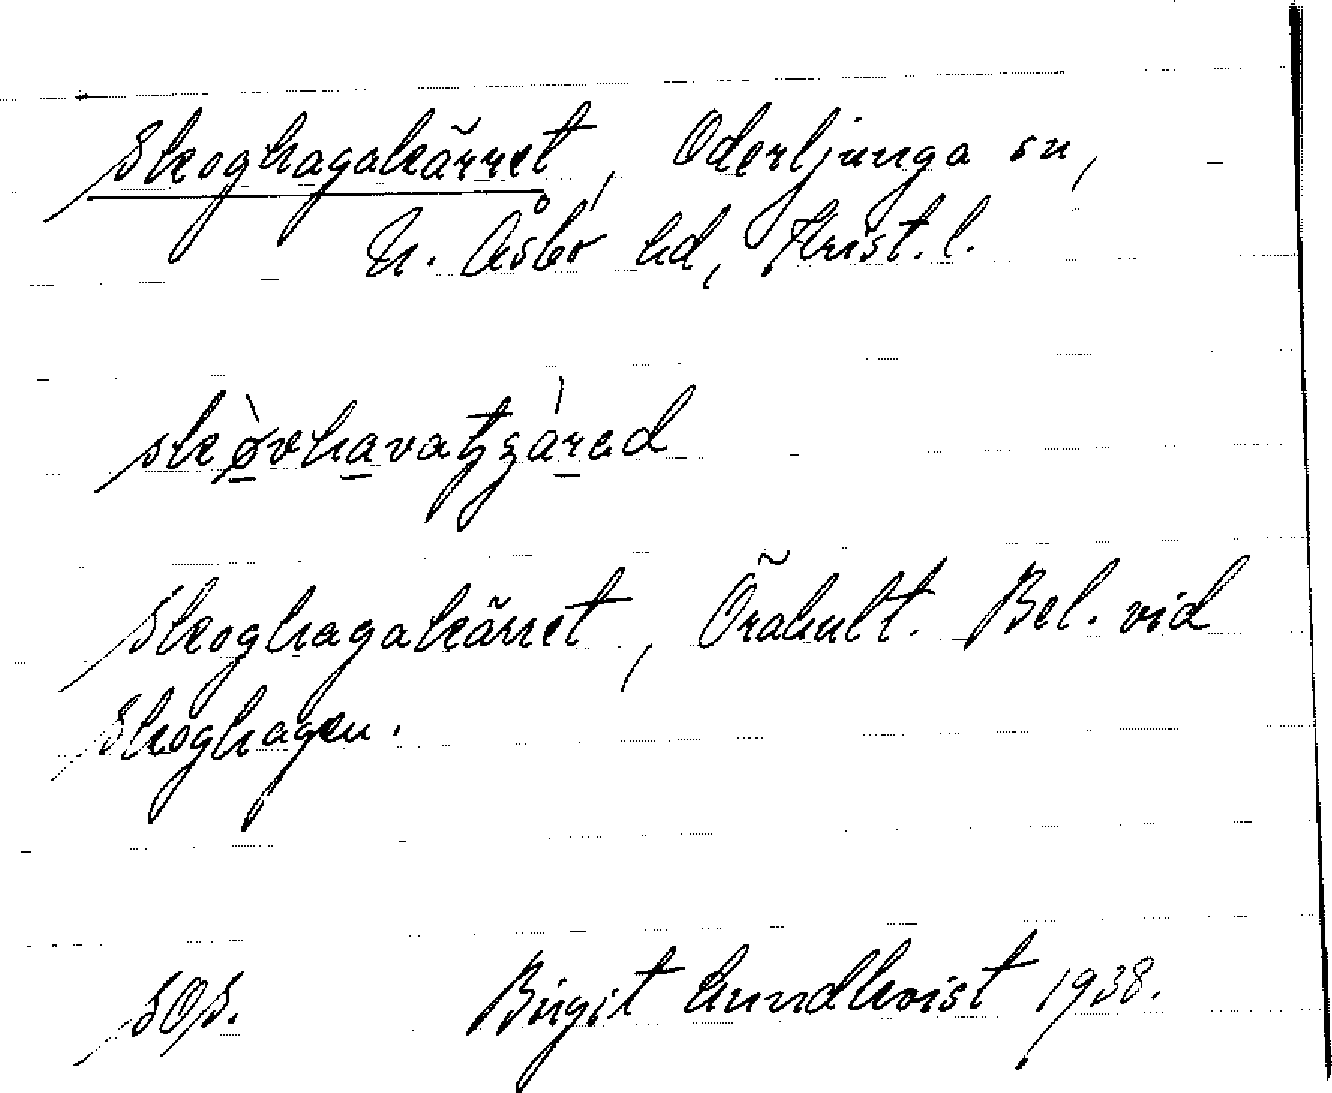 Skoghagakärret, Oderljunga sn,
N. Åsbo hd, Krist. l.
skòvhavatzárad
Skoghagakärret, Örahult. Bel. vid
Skoghagen.
SOS. Birgit Lundkvist 1938.